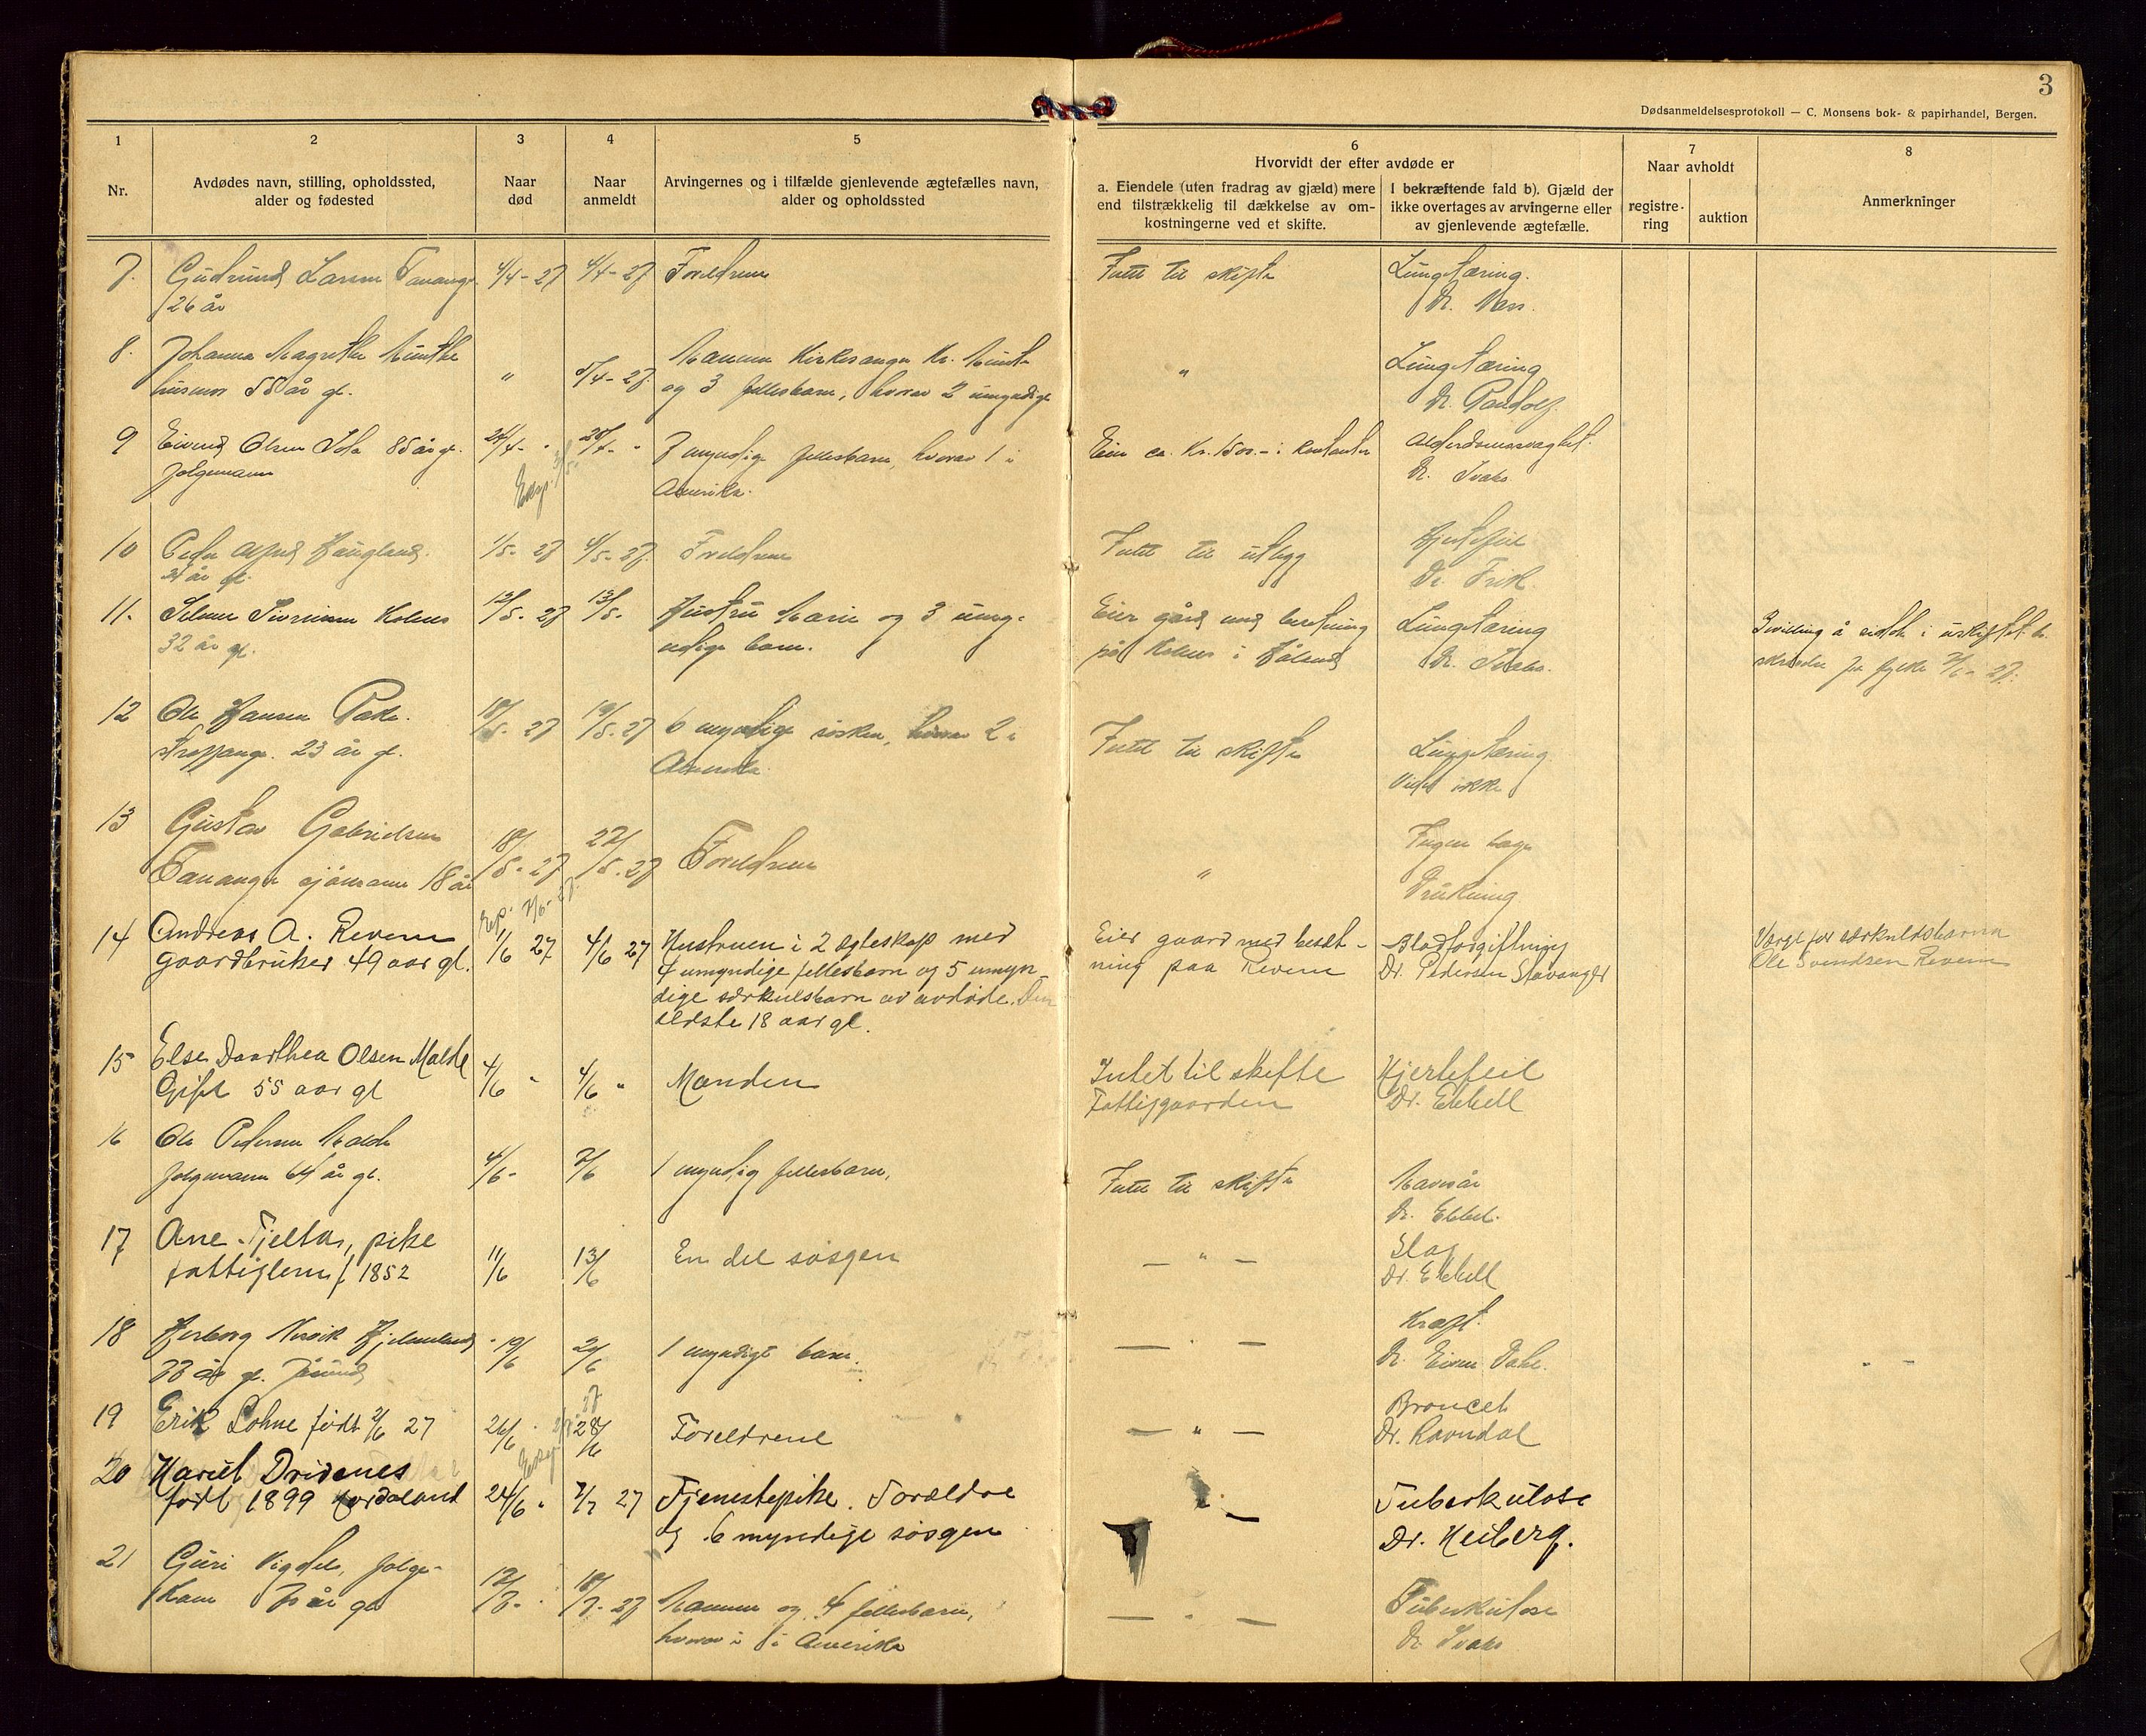 3
Dødsanmeldelsesprotokoll — C. Monsens bok- & papirhandel, Bergen.
1
2
3
4
5
6
7
8
Nr.
Avdødes navn, stilling, opholdssted,
alder og fødested
Naar
død
Naar
anmeldt
Arvingernes og i tilfælde gjenlevende ægtefælles navn,
alder og opholdssted
Hvorvidt der efter avdøde er
a. Eiendele (uten fradrag av gjæld) mere
end tilstrækkelig til dækkelse av om-
kostningerne ved et skifte.
I bekræftende fald b). Gjæld der
ikke overtages av arvingerne eller
av gjenlevende ægtefælle.
Naar avholdt
registre-
ring
auktion
Anmerkninger
7. Gudrund Larsen Tananger 4/4-27 4/4-27 Foreldrene Intet til skifte Lungetæring.
26 år Dr. Næss.
8. Johanna Magrethe Munthe Mannen Kirkesanger Kr. Munthe Lungetæring
husmor 55 år gl. " 5/4-27. og 3 fellesbarn, hvorav 2 umyndige " Dr.
9 Eivind Olsen Sola 85 år gl. 24/4- " 7 myndige fellesbarn, hvorav 1 i Eier ca. Kr. 1500.- i kontanter Alderdomssvaghet.
Folgemann Amerika. Dr. Svabo
10 Peder Alfred Haugland. 1/5-27 4/5-27. Foreldrene Intet til utlegg Hjertefeil
år gl. Dr. Frich
11. Selmer Sivertsen Kolnes 12/5-27 13/5- Hustru Marie og 3 umy- Eier gård med besetning Lungetæring Bevilling å sidde i uskiftet bo
32 år gl. ndige barn. på Kolnes i Håland Dr. Svabo. fra fylke 27.
12 Ole Hansen 18/5-27 19/5-27 6 myndige søsken, hvorav 2 i Intet til skifte Lungetæring
23 år gl. Amerika. Vides ikke
13 Gustav Gabrielsen 18/5-27 22/5-27 Foreldrene " Ingen læge
Tananger sjømann 18 år Drukning
Exp. 7/6-27.
14 Andreas A. Revem 1/6 27 4/6 27 Hustruen i 2 ægteskap med Eier gaard med besæt- Blodforgiftning Værge for særkuldsbarna
gaardbruker 49 aar gl. 4 umyndige fellesbarn og 5 umyn- ning paa Revem Dr. Pedersen Stavanger Ole Svendsen Revem
dige særkulsbarn av avdøde. Den
eldste 18 aar gl.
15 Else Doarthea Olsen Malde 4/6 " 4/6 " Manden Intet til skifte Hjertefeil
Gift 55 aar gl Fattiggaarden Dr. Ebbell
16 Ole Pedersen Malde 4/6- 7/6 1 myndig fellesbarn, Intet til skifte Mavesår
folgemann 64 år gl. Dr. Ebbel.
17 Ane Tjelta, pike 11/6 13/6 En del søsgen — " — Slag
fattiglem f. 1852 Dr. Ebbell
18 Herborg Hjelmeland 19/6 1 myndigt barn. — " — Kræft.
år gl. Dr. Einer Dahl.
19 Erik Sohne født 2/6 27 26/6 " 28/6 Foreldrene — " — Broncet
Dr. Ravndal
20 Hariet Dridenes 24/6 " 2/7 27 Tjenestepike. Foreldre " — Tuberkulose
født 1899 Hordaland og 6 myndige søsgen Dr. Heiberg.
21 Guri Vigdel, folge- 12/7- 18/7-27 Mannen og 4 fellesbarn, — " — Tuberkulose
kone år gl hvorav i Amerika Dr. Svabo